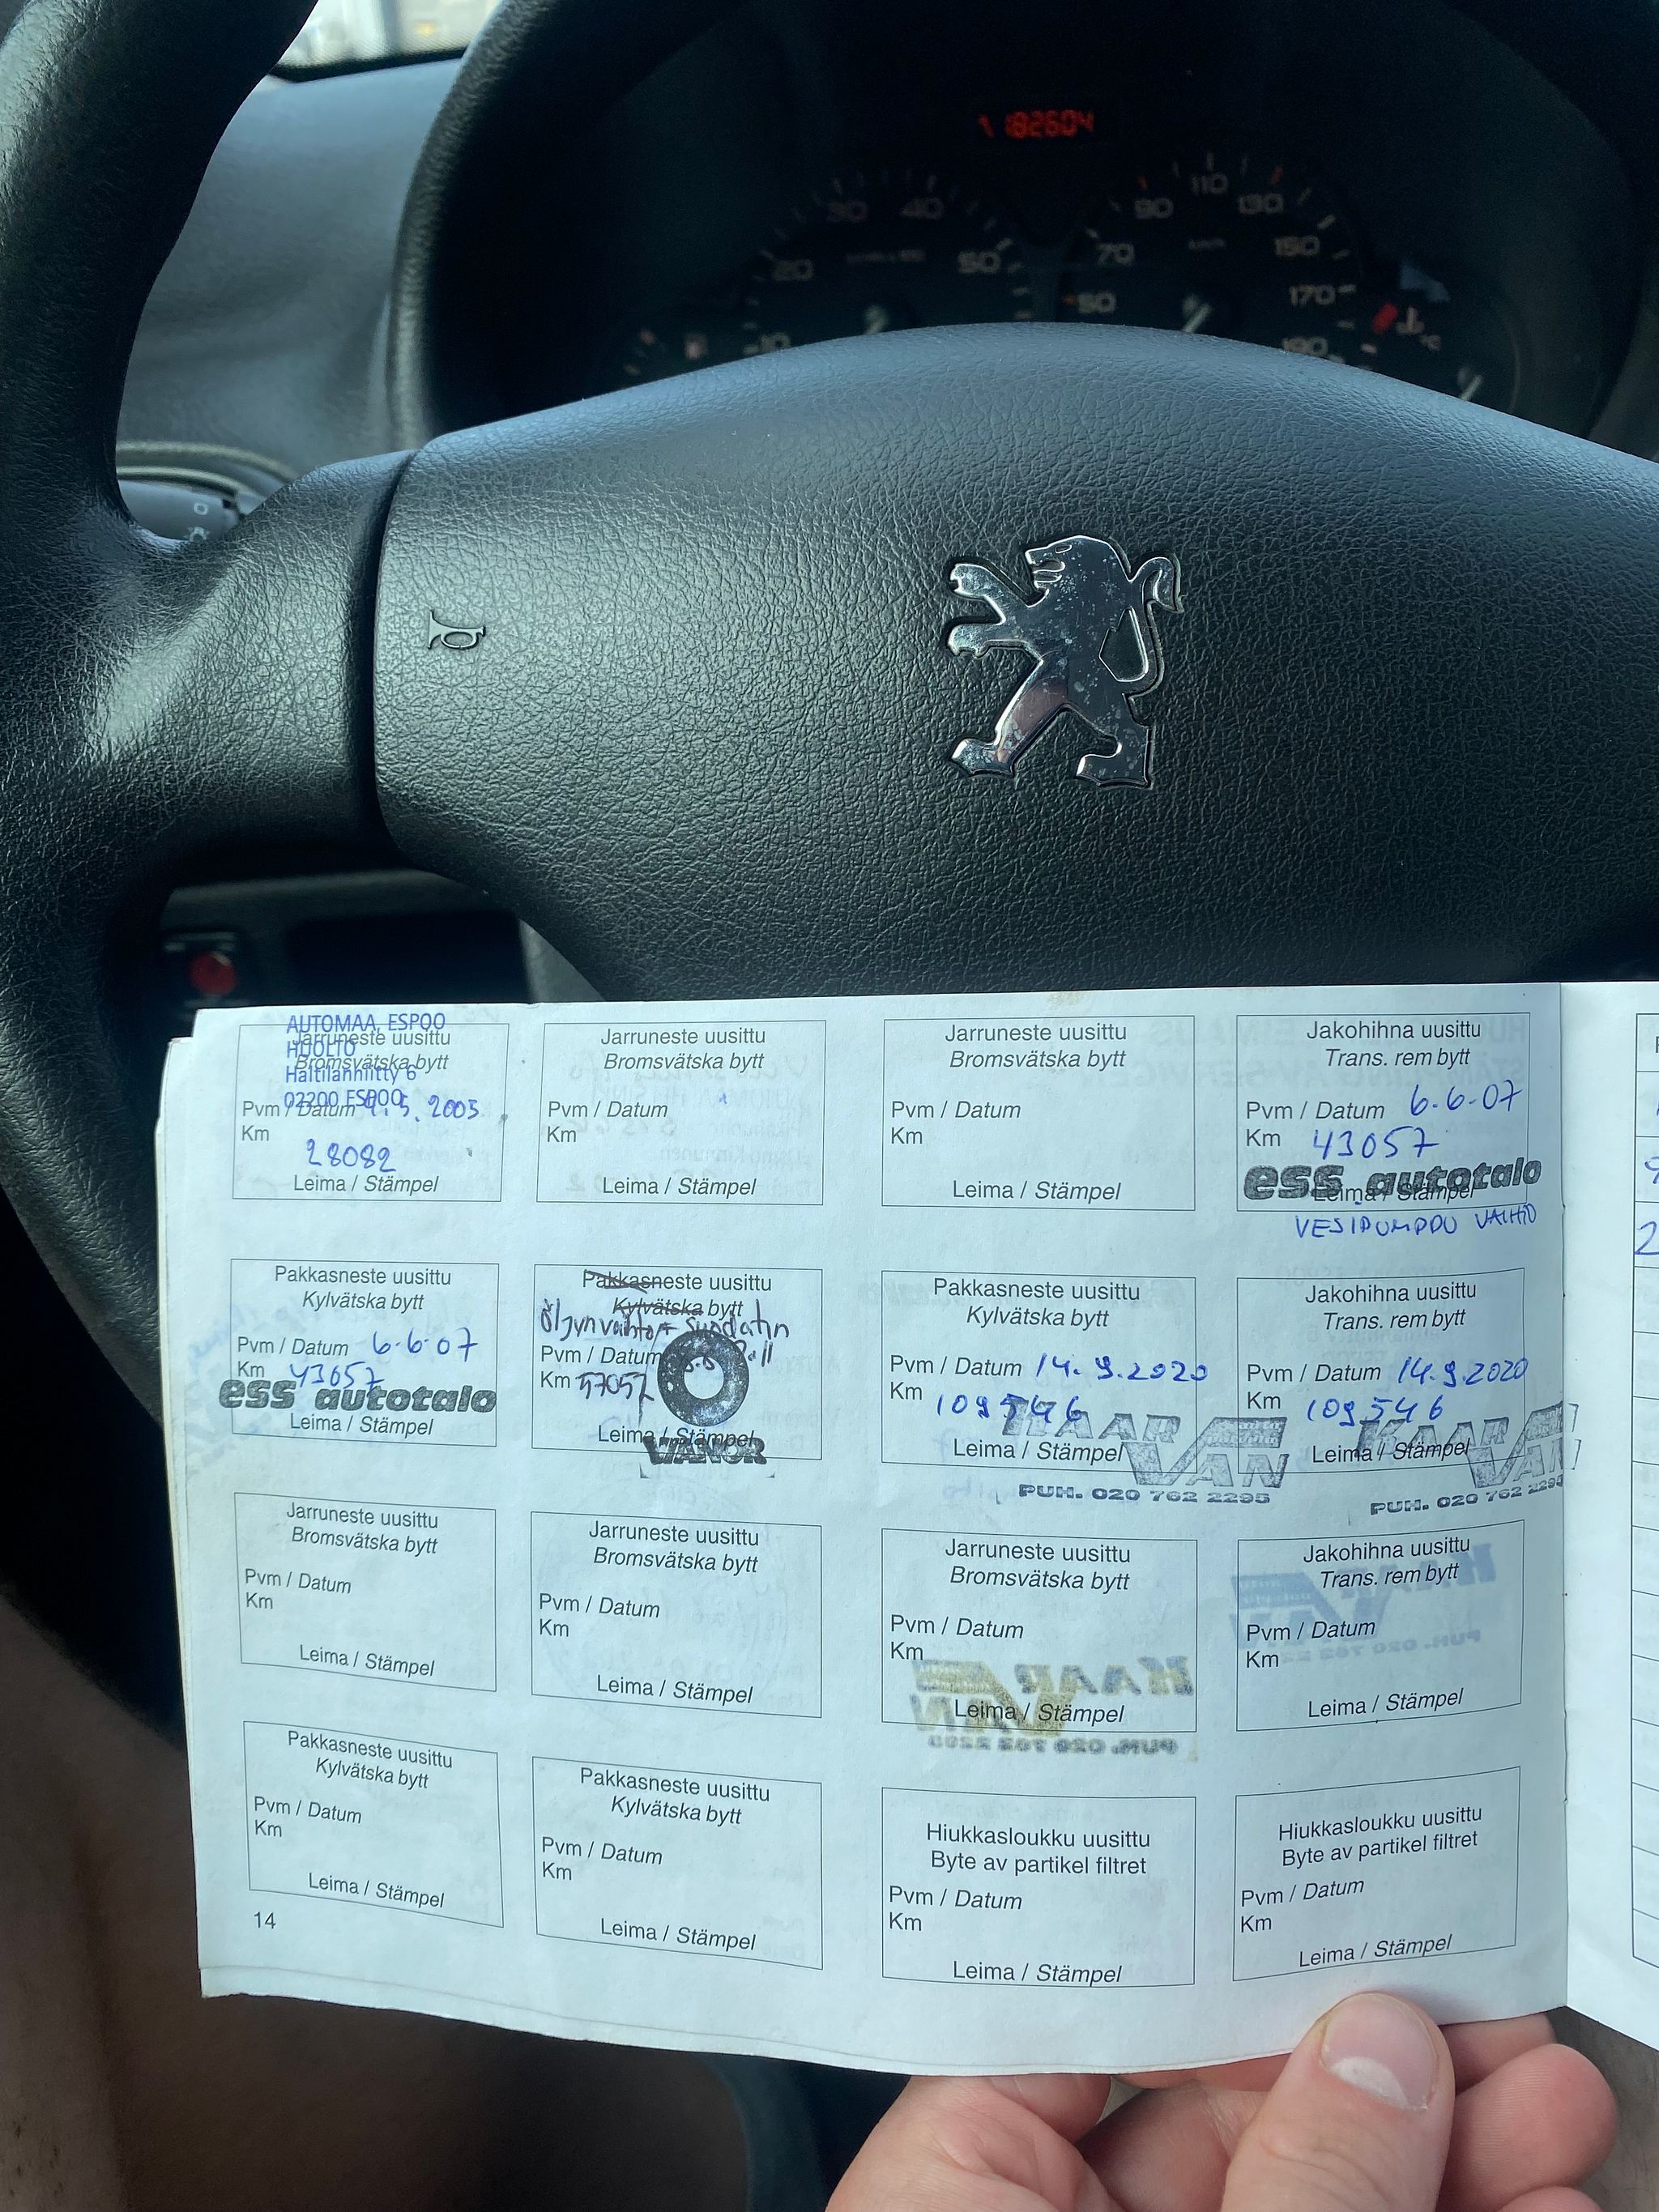 182604
30 40
20 50
10
90 110 130
70 150
50 170
190
AUTOMAA, ESPOO
HUOLTO
Haltilanniitty 6
02200 ESPOO
Jarruneste uusittu
Bromsvätska bytt
Pvm / Datum 9.5.2005
Km
28082
Leima / Stämpel
Jarruneste uusittu
Bromsvätska bytt
Pvm / Datum
Km
Leima / Stämpel
Jarruneste uusittu
Bromsvätska bytt
Pvm / Datum
Km
Leima / Stämpel
Jakohihna uusittu
Trans. rem bytt
Pvm / Datum 6.6.07
Km 43057
ess autotalo
Leima / Stämpel
VESIPUMPPU VAIHTO
Pakkasneste uusittu
Kylvätska bytt
Pvm / Datum 6.6.07
Km 43057
ess autotalo
Leima / Stämpel
Pakkasneste uusittu
Kylvätska bytt
Öljynvaihto + suodatin
Pvm / Datum
Km 57057
Leima / Stämpel
VIANOR
Pakkasneste uusittu
Kylvätska bytt
Pvm / Datum 14.9.2020
Km
109546
KAAR
VAN
Leima / Stämpel
PUH. 020 762 2295
Jakohihna uusittu
Trans. rem bytt
Pvm / Datum 14.9.2020
Km
109546
KAAR
VAN
Leima / Stämpel
PUH. 020 762 2295
Jarruneste uusittu
Bromsvätska bytt
Pvm / Datum
Km
Leima / Stämpel
Jarruneste uusittu
Bromsvätska bytt
Pvm / Datum
Km
Leima / Stämpel
Jarruneste uusittu
Bromsvätska bytt
Pvm / Datum
Km
KAAR
VAN
Leima / Stämpel
PUH. 020 762 2295
Jakohihna uusittu
Trans. rem bytt
Pvm / Datum
Km
Leima / Stämpel
Pakkasneste uusittu
Kylvätska bytt
Pvm / Datum
Km
Leima / Stämpel
Pakkasneste uusittu
Kylvätska bytt
Pvm / Datum
Km
Leima / Stämpel
Hiukkasloukku uusittu
Byte av partikel filtret
Pvm / Datum
Km
Leima / Stämpel
Hiukkasloukku uusittu
Byte av partikel filtret
Pvm / Datum
Km
Leima / Stämpel
14